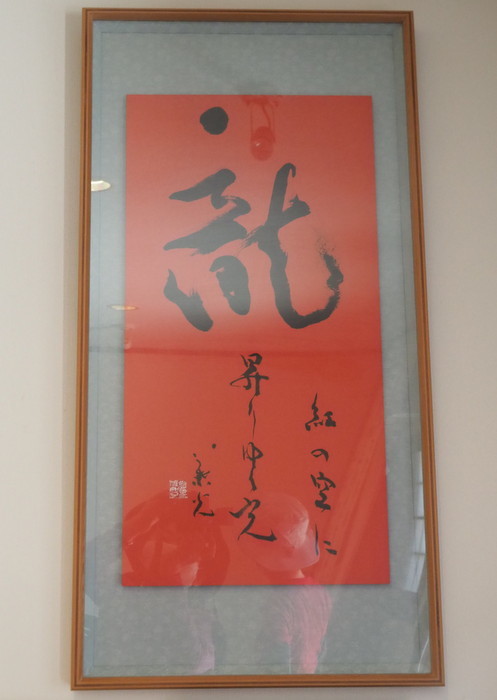 龍
紅の空に
昇りゆく光